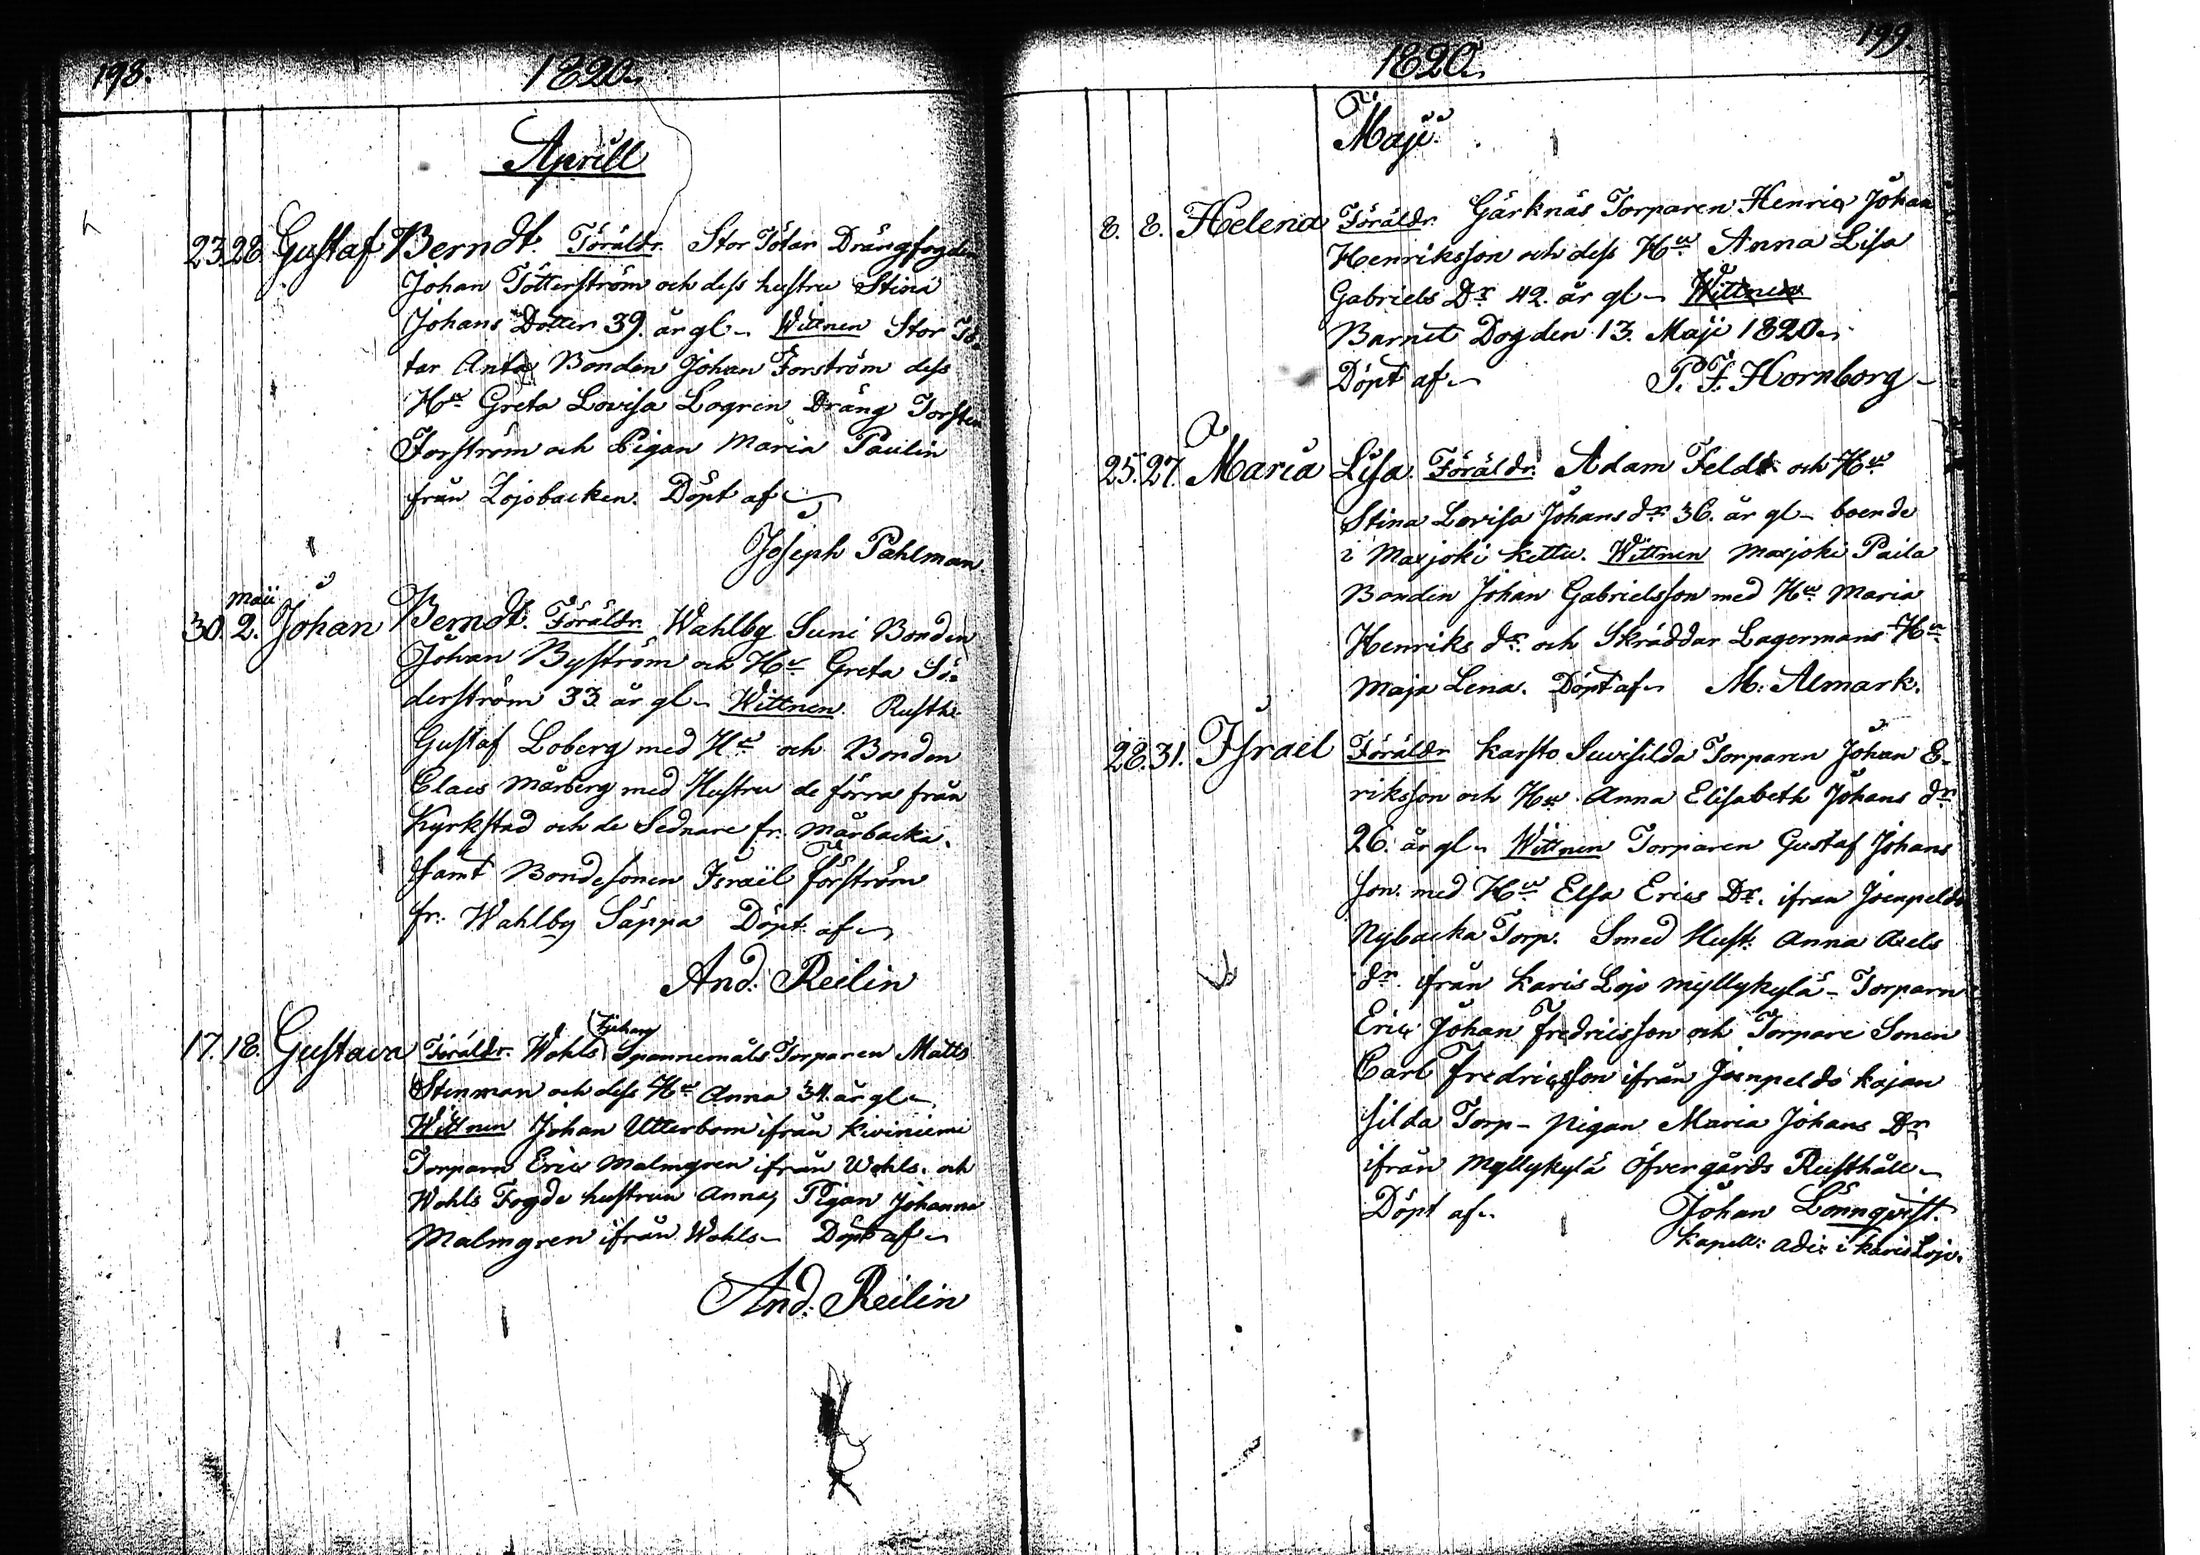 198.
1820.
Aprill
23. 28. Gustaf Berndt. Föräldr. Stor Tötar Drängfogden
Johan Tötterström och dess hustru Stina
Johans Dotter 39. år gl. Wittnen Stor Tö-
tar Bonden Johan Forström dess
Hu Greta Lovisa Logren Dräng Torsten
Forström och Pigan Maria Paulin
från Lojobacken. Döpt af
Joseph Pahlman.
Maii
30. 2. Johan Berndt. Föräldr. Wahlby Suni Bonden
Johan Byström och Hu Greta Sö-
derström 33 år gl. Wittnen. Rusth:
Gustaf Loberg med Hu och Bonden
Claes Mårberg med Hustru de förra från
Kyrkstad och de Sednare fr. Mårbacka.
samt Bondesonen Israël Förström
fr. Wahlby Säppä Döpt af
And: Reilin
17. 18. Gustava Föräldr. Wohls Spannemåls Torparen Matts
Stenman och dess Hu Anna 34. år gl.
Wittnen Johan Utterbom ifrån Kiviniemi
Torparn Eric Malmgren ifrån Wohls. och
Wohls Fogde hustrun Anna, Pigan Johanna
Malmgren ifrån Wohls. Döpt af
And: Reilin
199.
1820.
Maji
8. 8. Helena Föräldr. Gärknäs Torparen Henric Johan
Henriksson och dess Hu Anna Lisa
Gabriels Dr 42. år gl. Wittnen
Barnet Dog den 13. Maji 1820.
Döpt af P. F. Hornborg
25. 27. Maria Lisa. Föräldr. Adam Feldt och Hu
Stina Lovisa Johans dr 36. år gl. boende
i Maxjoki Kettu. Wittnen Maxjoki Paila
Bonden Johan Gabrielsson med Hu Maria
Henriks dr. och Skräddar Lagermans Hu
Maja Lena. Döpt af M. Almark.
28. 31. Israel Föräldr Karsto Suvisilda Torparen Johan E-
riksson och Hu. Anna Elisabeth Johans dr
26. år gl. Wittnen Torparen Gustaf Johans
son. med Hu Elsa Erics Dr. ifrån Joenpeldo
Nybacka Torp. Smed Hust: Anna Axels
dr. ifrån Karis Lojo Myllykylä - Torparn
Eric Johan Fredricsson och Torpare Sonen
Carl Fredricsson ifrån Joenpeldo Kajan
silda Torp - Pigan Maria Johans Dr
ifrån Myllykylä Öfvergårds Rusthåll
Döpt af. Johan Lönnqvist.
Kapell: Adj: i Karis Lojo.